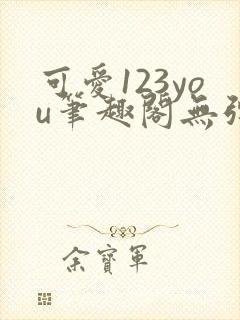 可愛123yo
u筆趣閣無
余寳軍